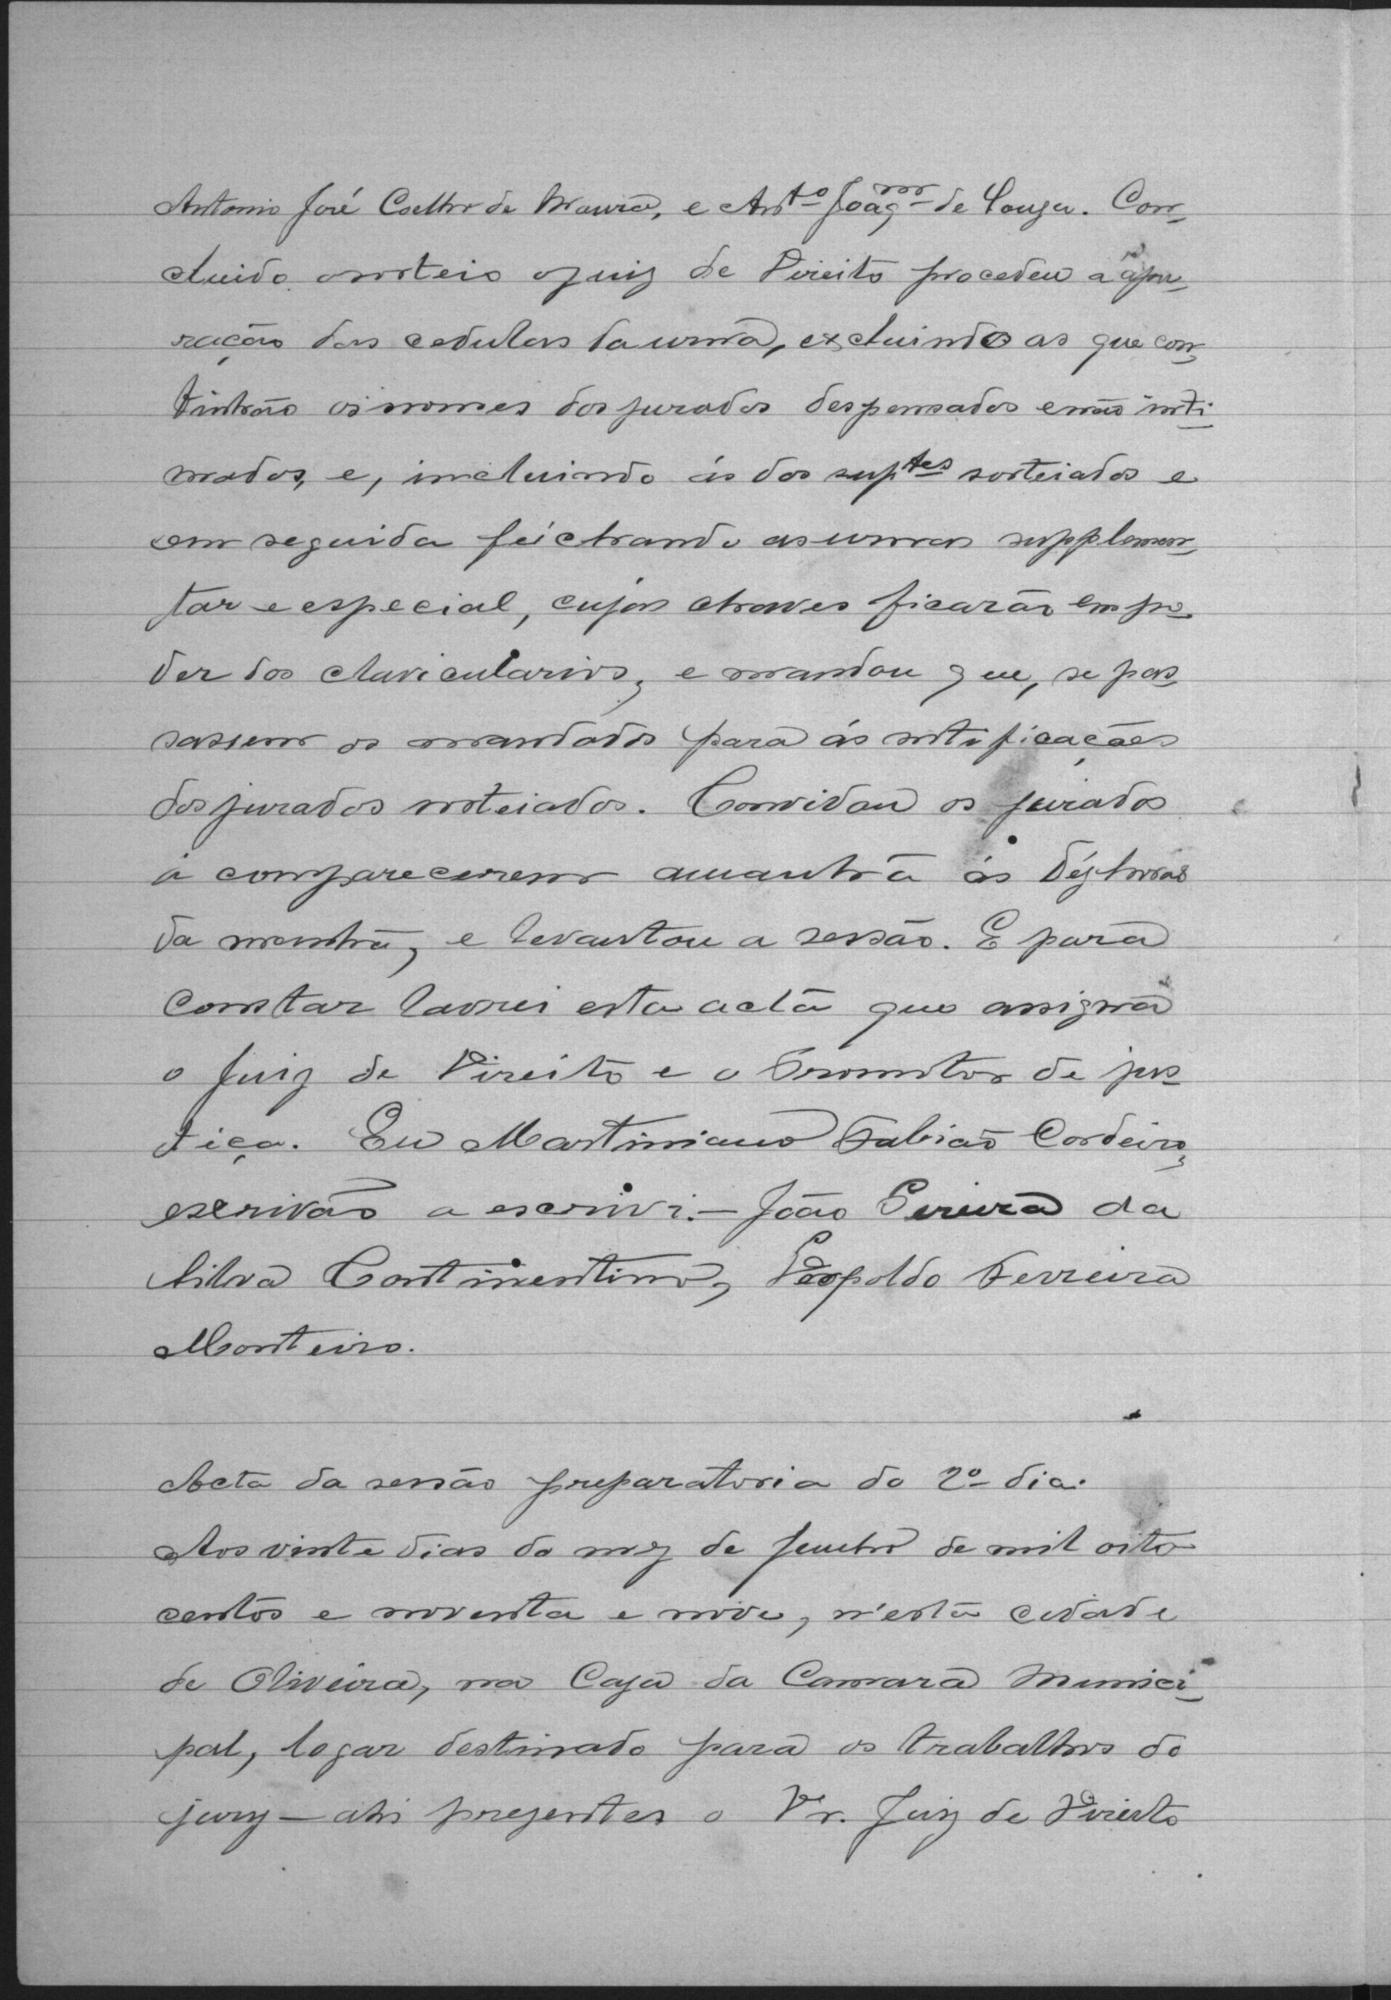 Antonio José Coelho de Moura, e Ant.º Joaq.m de Souza. Con-
cluido o sorteio o juiz de Direito procedeu a apu-
ração das cedulas da urna, excluindo as que con-
tinhão os nomes dos jurados despensados e não inti-
mados, e, incluindo ás dos sup.tes sorteiados e
em seguida feichando as urnas supplemen-
tar e especial, cujas chaves ficarão em po-
der dos clavicularios, e mandou que, se pas-
sassem os mandados para ás notificações
dos jurados sorteiados. Convidou os jurados
á comparecerem amanhã ás dez horas
da manhã, e levantou a sessão. E para
constar lavrei esta acta que assigna
o Juiz de Direito e o Promotor de jus-
tiça. Eu Martiniano Fabião Cordeiro,
escrivão a escrivi. — João Pereira da
Silva Continentino, Leopoldo Ferreira
Monteiro.
Acta da sessão preparatoria do 2º dia.
Aos vinte dias do mez de Junho de mil oito
centos e noventa e nove, n'esta cidade
de Oliveira, na Caza da Camara Munici-
pal, logar destinado para os trabalhos do
jury — ahi prezentes o Dr. Juiz de Direito